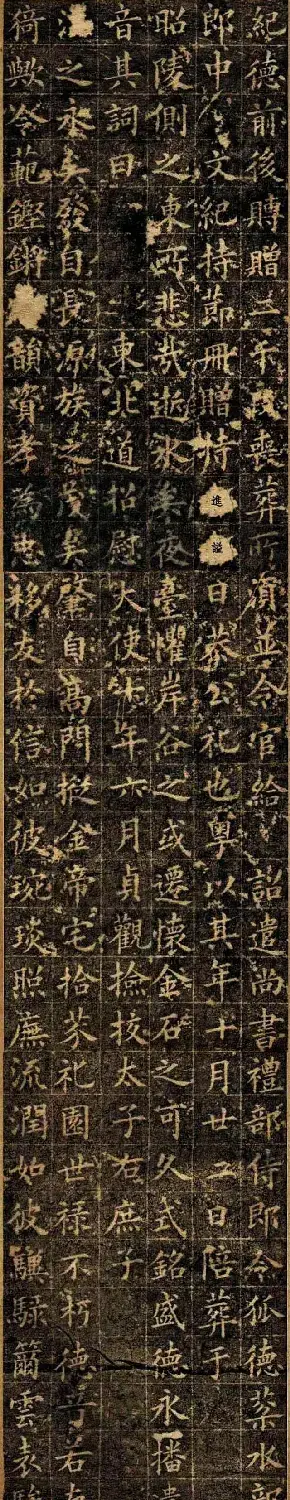 紀德前後賻贈三千段喪葬所須並令官給詔遣尚書禮部侍郎令狐德棻水部
郎中文紀持節冊贈特進諡曰恭公礼也粵以其年十月廿二日陪葬于
昭陵側之東所悲哉逝水矣夜臺懼岸谷之或遷懷金石之可久式銘盛德永播
音其詞曰東北道招慰大使廿年六月貞觀撿挍太子右庶子
之永矣發自長源族之茂矣肇自高門掞金帝宅拾芥祀園世祿不朽德音若
猗歟令範鏗鏘韻資孝為忠移友於信如彼琬琰照廡流潤如彼驥騄籋雲表